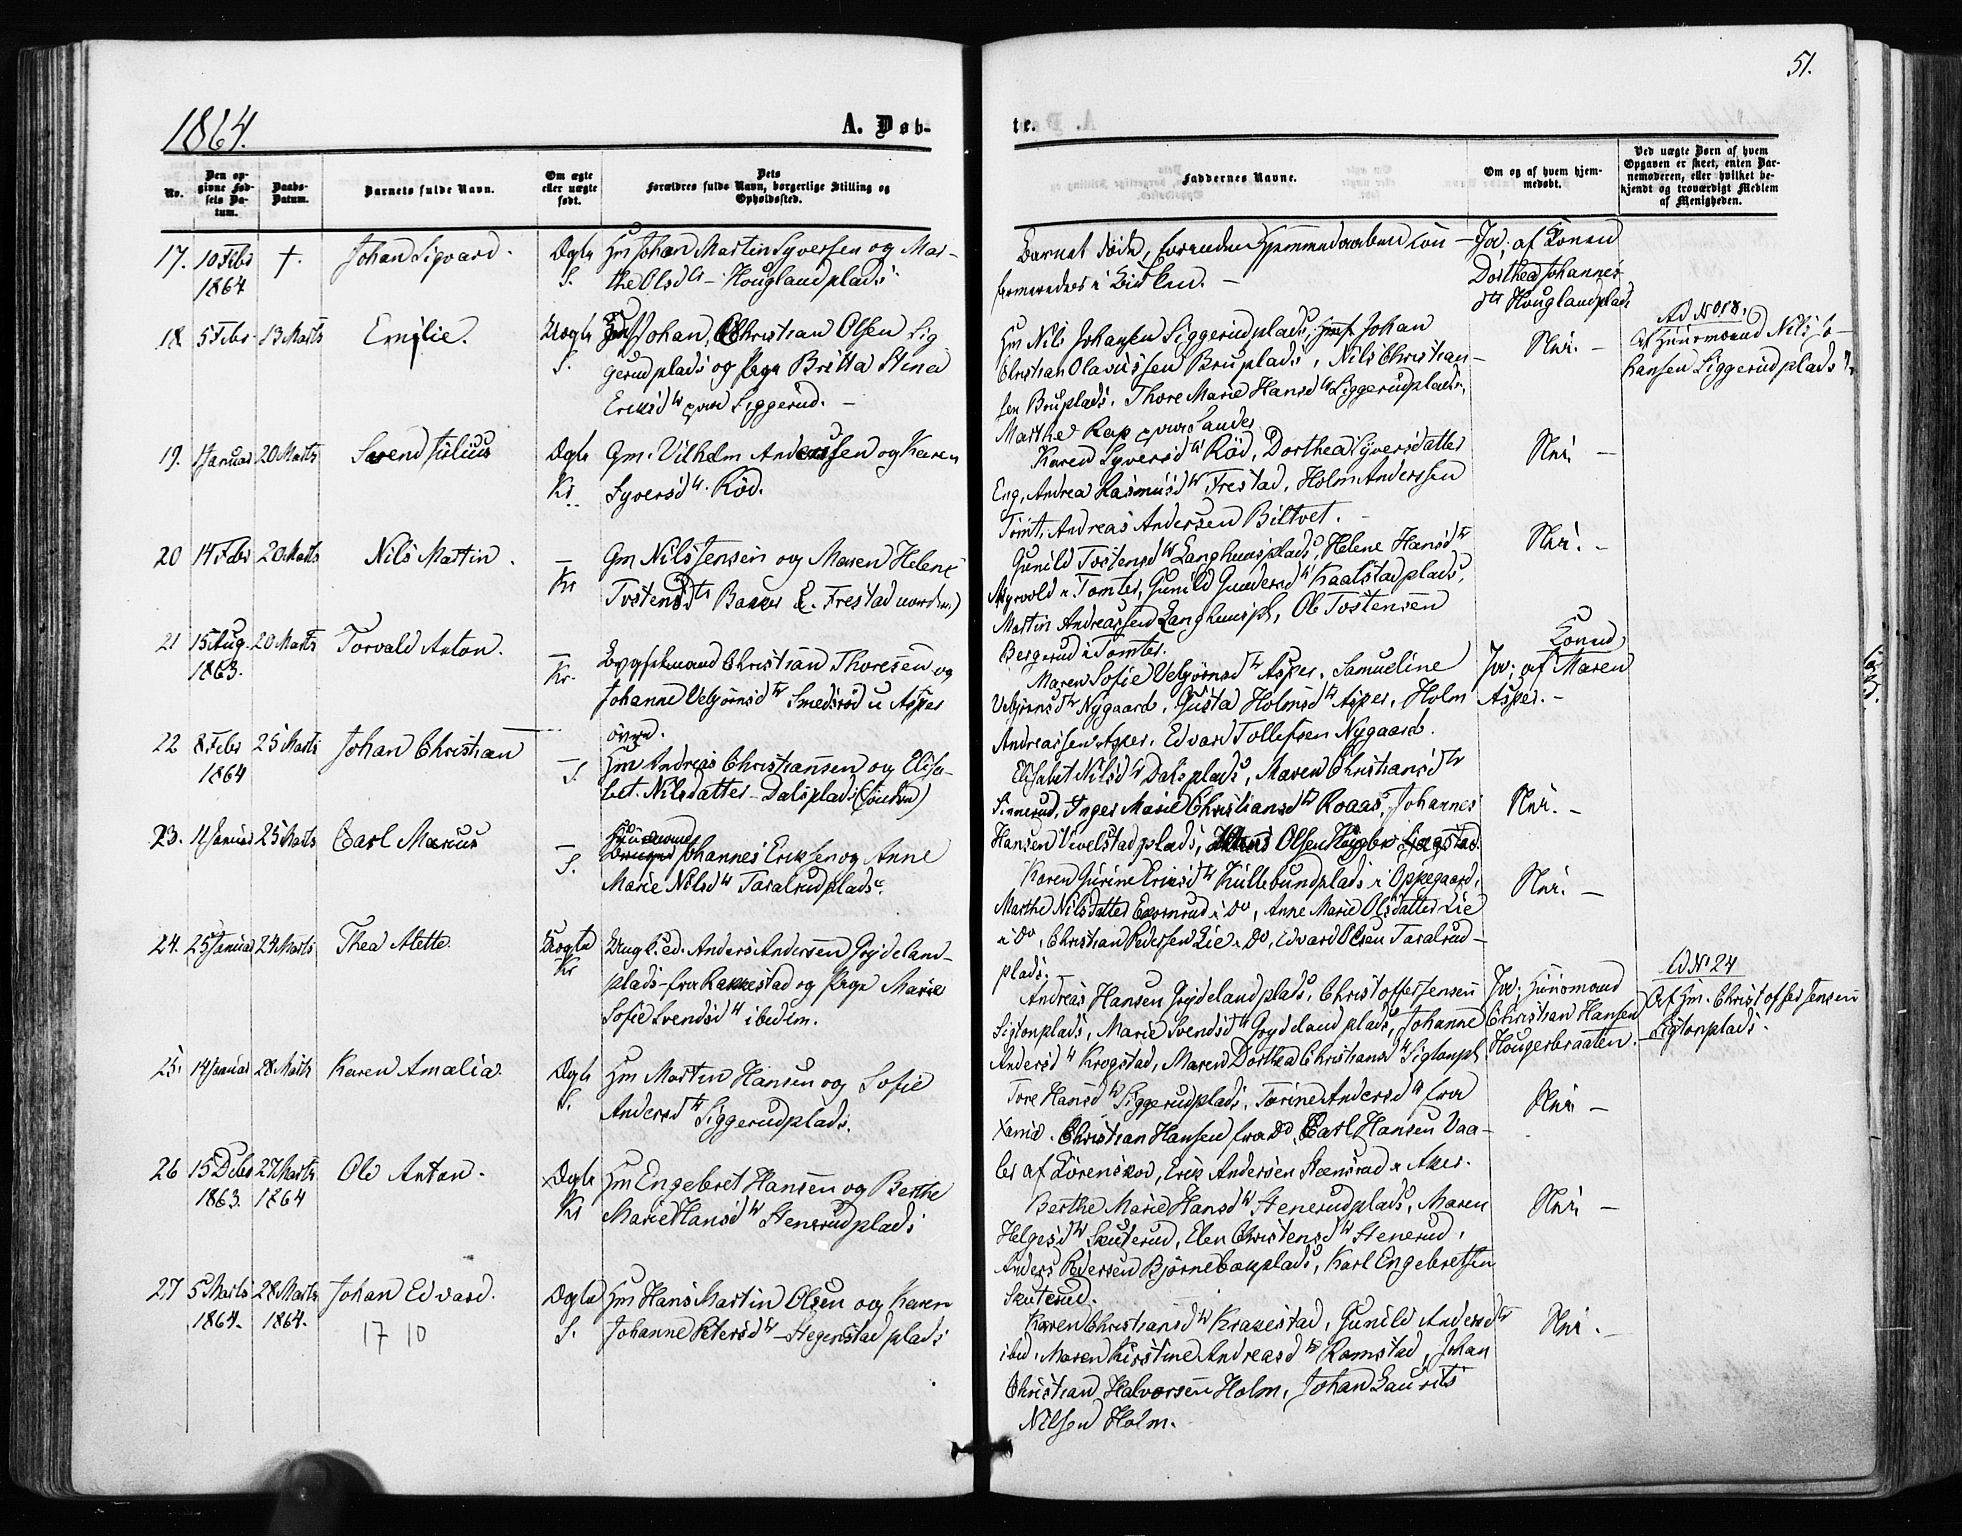 51.
1864.
A. Døb-
te.
No.
Den op-
givne Fød-
sels Da-
tum.
Daabs-
Datum.
Barnets fulde Navn.
Om ægte
eller uægte
født.
Dets
Forældres fulde Navn, borgerlige Stilling og
Opholdssted.
Faddernes Navne.
Om og af hvem hjem-
medøbt.
Ved uægte Børn af hvem
Opgaven er skeet, enten Bar-
nemoderen, eller hvilket be-
kjendt og troværdigt Medlem
af Menigheden.
17. 10 Febr
1864
†.
Johan Sigvard.
Ægte
S.
Hm Johan Martin Syversen og Mar-
the Olsd tr - Houglandplads
Barnet døde, forenden Hjemmedaaben con-
firmeredes i Kirken. -
Jo. af Konen
Dorthea Johannes
dtr Houglandplads
18. 5 Febr. 13 Marts
Emilie.
Uægte
S.
Johan Christian Olsen Sig
gerudplads og Pige Britta Stina
Eriksd tr paa Siggerud. -
Hm Nils Johansen Siggerudplads, Johan
Christian Olavussen Bruplads, Nils Christian-
sen Bruplads. Thore Marie Hansd tr Siggerudplads,
Marthe Rap paa Sander
Nei. -
Ad No 18.
Af Huusmand Nils Jo-
hansen Siggerudplads
19. 1 Januar 20 Marts
Svend Julius
Ægte
Kr.
Gm. Vilhelm Anderssen og Karen
Syversd tr. Rød.
Karen Syversd tr Rød, Dorthea Syversdatter
Eng, Andrea Rasmusd tr Frestad, Holm Anderssen
Tomt, Andreas Andersen Biltvet. -
Nei -
20 14 Febr 20 Marts
Nils Martin.
-
Kr
Gm Nils Jensen og Maren Helene
Tostensd tr Bakker (Frestad nordre)
Gunild Tostensd tr Langhuusplads, Helene Hansd tr
Myrvold i Tomter, Gunild Gundersd tr Kaatstadplads,
Martin Andreassen Langhuuspl, Ole Tostensen
Bergerud i Tomter.
Nei. -
21 15 Aug. 20 Marts
1863.
Torvald Anton.
-
Kr.
Christian Thoresen og
Johanne Vebjørnsd tr Smedsrød u Asper
øvre.
Maren Sofie Vebjørnsd tr Asper, Samueline
Vebjørnsd tr Nygaard, Gusta Holmsd tr Asper, Holm
Andreassen Asper, Edvard Tollefsen Nygaard.
Konen
Jo; af Maren
Asper. -
22 8 Febr 25 Marts
1864
Johan Christian
-
S.
Hm Andreas Christiansen og Elisa-
bet Nilsdatter - Dalsplads (Søndre)
Elisabet Nilsd tr Dalsplads, Maren Christiansd tr
Finnerud, Inger Marie Christiansd tr Roaas, Johannes
Hansen Vevelstadplads, Olsen
Nei. -
23. 11 Januar 25 Marts
Carl Marius
-
S.
Huusmand
Johannes Eriksen og Anne
Marie Nilsd tr Taralrudplads.
Karen Gurine Eriksd tr Kullebundplads i Oppegaard,
Marthe Nilsdatter Ekornrud i Do, Anne Marie Olsdatter Lie
i Do, Christian Pedersen Lie i Do, Edvard Olsen Taralrud-
plads.
Nei. -
24. 25 Januar 24 Marts
Thea Alette.
Uægte
Kr
Ungk. ed. Anders Andersen Grydeland-
plads - fra Rakkestad og Pige Marie
Sofie Svendsd tr ibidem.
Andreas Hansen Grydelandplads, Christoffer Jensen
Sigtonplads, Marie Svendsd tr Grydelandplads, Johanne
Andersd tr Krogstad, Maren Dorthea Christiansd tr Sigtonpl.
Jo: Huusmand
Christian Hansen
Hougerbraaten. -
Ad No 24
Af Hm. Christoffer Jensen
Sigtonplads.
25. 14 Januar 28 Marts
Karen Amalia.
Ægte
S.
Hm Martin Hansen og Sofie
Andersd tr Siggerudplads.
Tore Hansd tr Siggerudplads, Torine Andersd tr fra
Christian Hansen fra Do, Carl Hansen Vaa-
ler af Lørenskov, Erik Andersen Stensrud i Aker.
Nei -
26 15 Debr 27 Marts
1863. 1864
Ole Anton.
Ægte
Kr
Hm Engebret Hansen og Berthe
Marie Hansd tr Stenerudplads
Berthe Marie Hansd tr Stenerudplads, Maren
Helgesd tr Skuterud, Elen Christensd tr Stenerud,
Anders Pedersen Bjørnebækplads, Karl Engebretsen
Skuterud.
Nei -
27 5 Marts 28 Marts
1864. 1864.
Johan Edvard.
17 10
Ægte
S.
Hm Hans Martin Olsen og Karen
Johanne Petersd tr - Hegenstadplads
Karen Christiansd tr Krakestad, Gunild Andersd tr
ibid, Maren Kirstine Andreasd tr Ramstad, Johan
Christian Halvorsen Holm, Johan Laurits
Nilsen Holm.
Nei. -